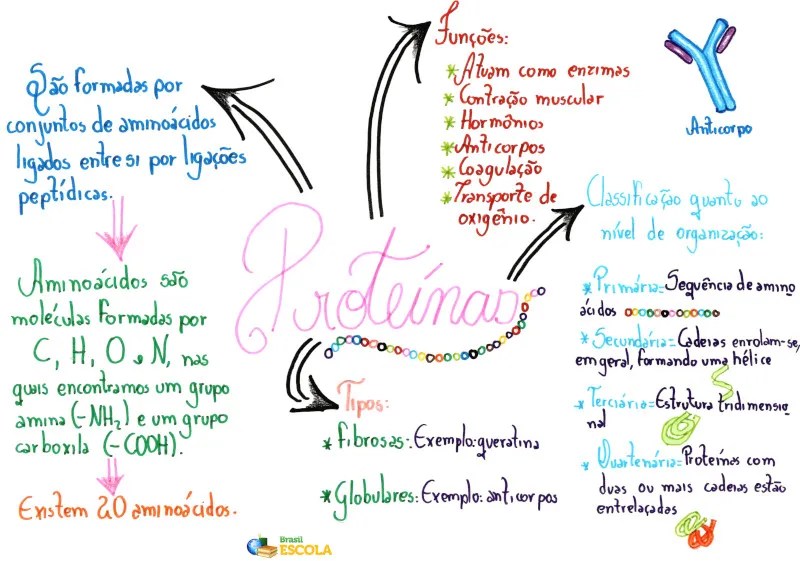 Proteínas
São formadas por
conjuntos de aminoácidos
ligados entre si por ligações
peptídicas.
Aminoácidos são
moléculas formadas por
C, H, O e N, nas
quais encontramos um grupo
amina (-NH₂) e um grupo
carboxila (-COOH).
Existem 20 aminoácidos.
Funções:
* Atuam como enzimas
* Contração muscular
* Hormônios
* Anticorpos
* Coagulação
* Transporte de
oxigênio.
Anticorpo
Classificação quanto ao
nível de organização:
* Primária= Sequência de amino
ácidos
* Secundária= Cadeias enrolam-se,
em geral, formando uma hélice
* Terciária= Estrutura tridimensio
nal
* Quartenária= Proteínas com
duas ou mais cadeias estão
entrelaçadas
Tipos:
* Fibrosas: Exemplo: queratina
* Globulares: Exemplo: anticorpos
Brasil
ESCOLA